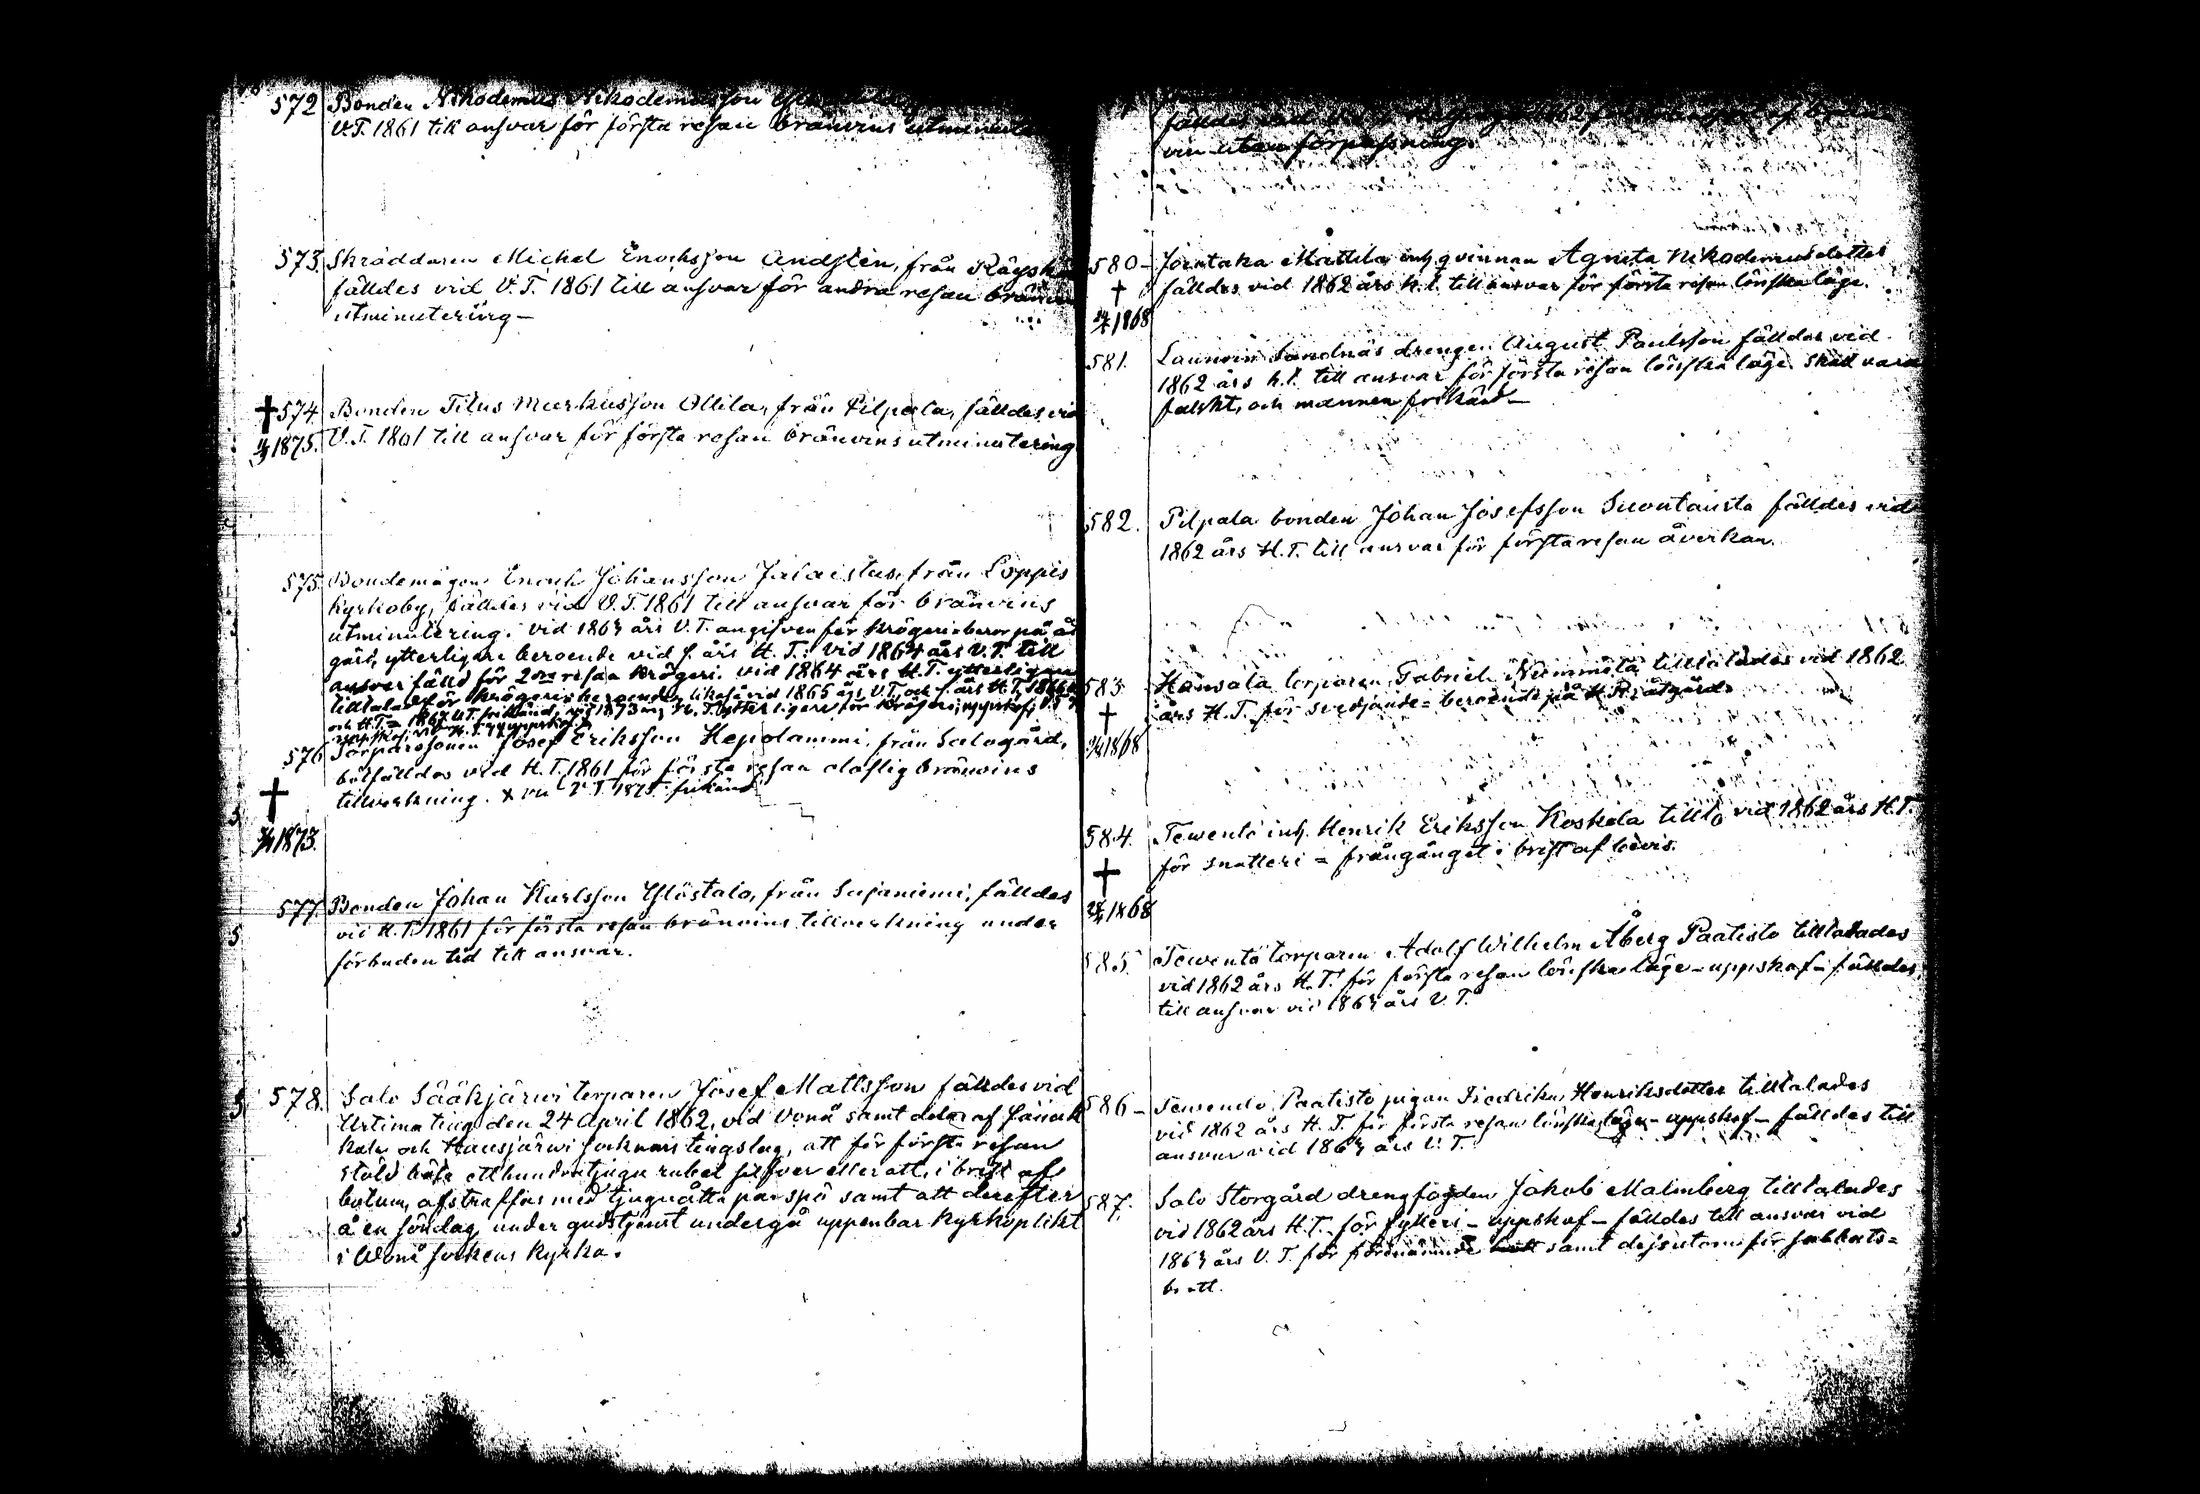 572 Bonden Nikodemus Nikodemusson
V.T. 1861 till ansvar för första resan bränvins utminutering
573. Skräddaren Michel Enochsson Andstén, från
fälldes vid V.T. 1861 till ansvar för andra resan bränvins
utminutering —
† 574. Bonden Titus Markusson Ollila, från Pilpala, fälldes vid
1875. V.T. 1861 till ansvar för första resan bränvins utminutering
575. Bondemågen Enoch Johansson Jalaistus, från Loppis
kyrkoby, fälldes vid V.T. 1861 till ansvar för bränvins
utminutering. vid 1863 års V.T. angifven för krögeri = beror på åt
gärd, ytterligare beroende vid s. års H.T.: vid 1864 års V.T. till
ansvar fälld för 2dra resan krögeri. vid 1864 års H.T. ytterligare
tilltalad för krögeri = beroende, likaså vid 1865 års V.T. och s. års H.T. 1866
och H.T. = 1867 V.T. frikänd; vid 1873 års H.T. ytterligare för krögeri, uppskof;
uppskof; vid H.T. uppskof
576 Torparesonen Josef Eriksson Hepolammi, från Salogård,
botfälldes vid H.T. 1861 för första resan olaflig bränvins
† tillverkning. vid V.T. 1875 frikänd
1873.
577. Bonden Johan Karlsson Ylöstalo, från Sajaniemi, fälldes
vid H.T. 1861 för första resan bränvins tillverkning under
förbuden tid till ansvar.
578. Salo Sääkjärwi torparen Josef Mattsson fälldes vid
Urtima ting den 24 April 1862, vid Vonå samt delar af Janak
kala och Hausjärwi socknars tingslag, att för första resan
stöld böta etthundratjugu rubel silfver eller att, i brist af
botum, afstraffas med tjuguåtta par spö samt att derefter
å en söndag under gudstjenst undergå uppenbar kyrkoplikt
i Wonå sockens kyrka.
fälldes vid
vin utan förpassning.
580 — Joentaka Mattila inh. qvinnan Agneta Nikodemusdotter
† fälldes vid 1862 års H.T. till ansvar för första resan lönskaläge.
1868
581. Launonen Sandnäs drengen August Paulsson fälldes vid
1862 års H.T. till ansvar för första resan lönskaläge. Skall vara
falskt, och mannen frikänd —
582. Pilpala bonden Johan Josefsson Suontausta fälldes vid
1862 års H.T. till ansvar för första resan åverkan.
583 Hänsälä torparen Gabriel Nummela tilltalades vid 1862
† års H.T. för svedjande = beroende på H.R. åtgärd.
1868
584. Tewentö inh. Henrik Eriksson Koskela tillt. vid 1862 års H.T.
† för snatteri = frångånget i brist af bevis.
1868
585. Tewentö torparen Adolf Wilhelm Åberg Paatisto tilltalades
vid 1862 års H.T. för första resan lönskaläge — uppskof — fälldes
till ansvar vid 1863 års V.T.
586 — Tewentö Paatisto pigan Fredrika Henriksdotter tilltalades
vid 1862 års H.T. för första resan lönskaläge — uppskof — fälldes till
ansvar vid 1863 års V.T.
587. Salo Storgård drengfogden Jakob Malmberg tilltalades
vid 1862 års H.T. för fylleri — uppskof — fälldes till ansvar vid
1863 års V.T. för förenämnde samt dessutom för sabbats=
brott.